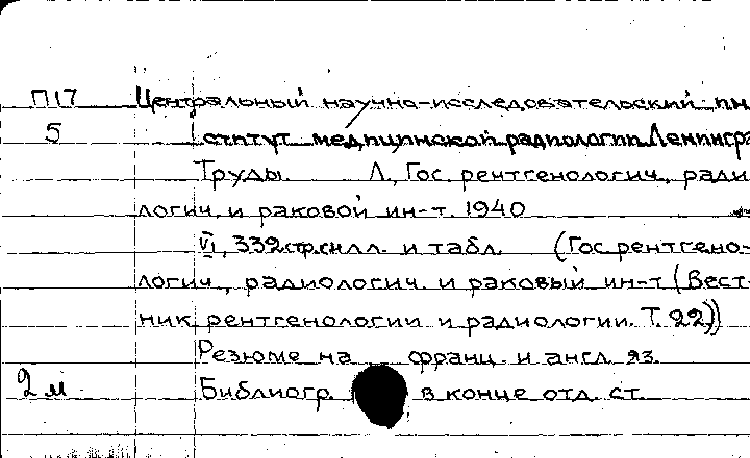 П17 Центральный научно-исследовательский ин-
5 ститут медицинской радиологии. Ленингра
Труды. Л., Гос. рентгенологич., ради
логич. и раковой ин-т. 1940
VI, 332 стр. с илл. и табл. (Гос. рентгено-
логич., радиологич. и раковый ин-т (Вест-
ник рентгенологии и радиологии. Т. 22))
Резюме на франц. и англ. яз.
2 м Библиогр. в конце отд. ст.